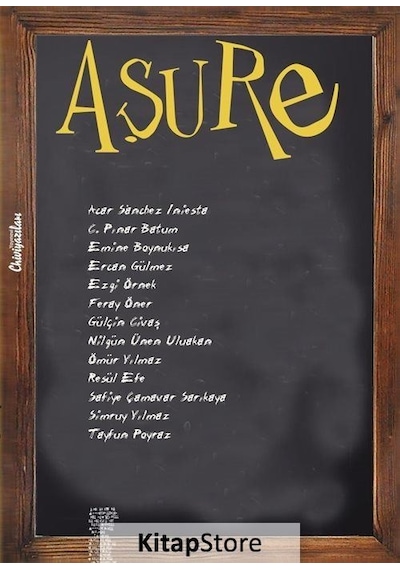 AŞURe
Acar Sánchez Iniesta
C. Pınar Batum
Emine Boynukısa
Ercan Gülmez
Ezgi Örnek
Feray Öner
Gülçin Civaş
Nilgün Ünen Uluakan
Ömür Yılmaz
Resül Efe
Safiye Çamavar Sarıkaya
Simruy Yılmaz
Tayfun Poyraz
Chiviyazıları
KitapStore